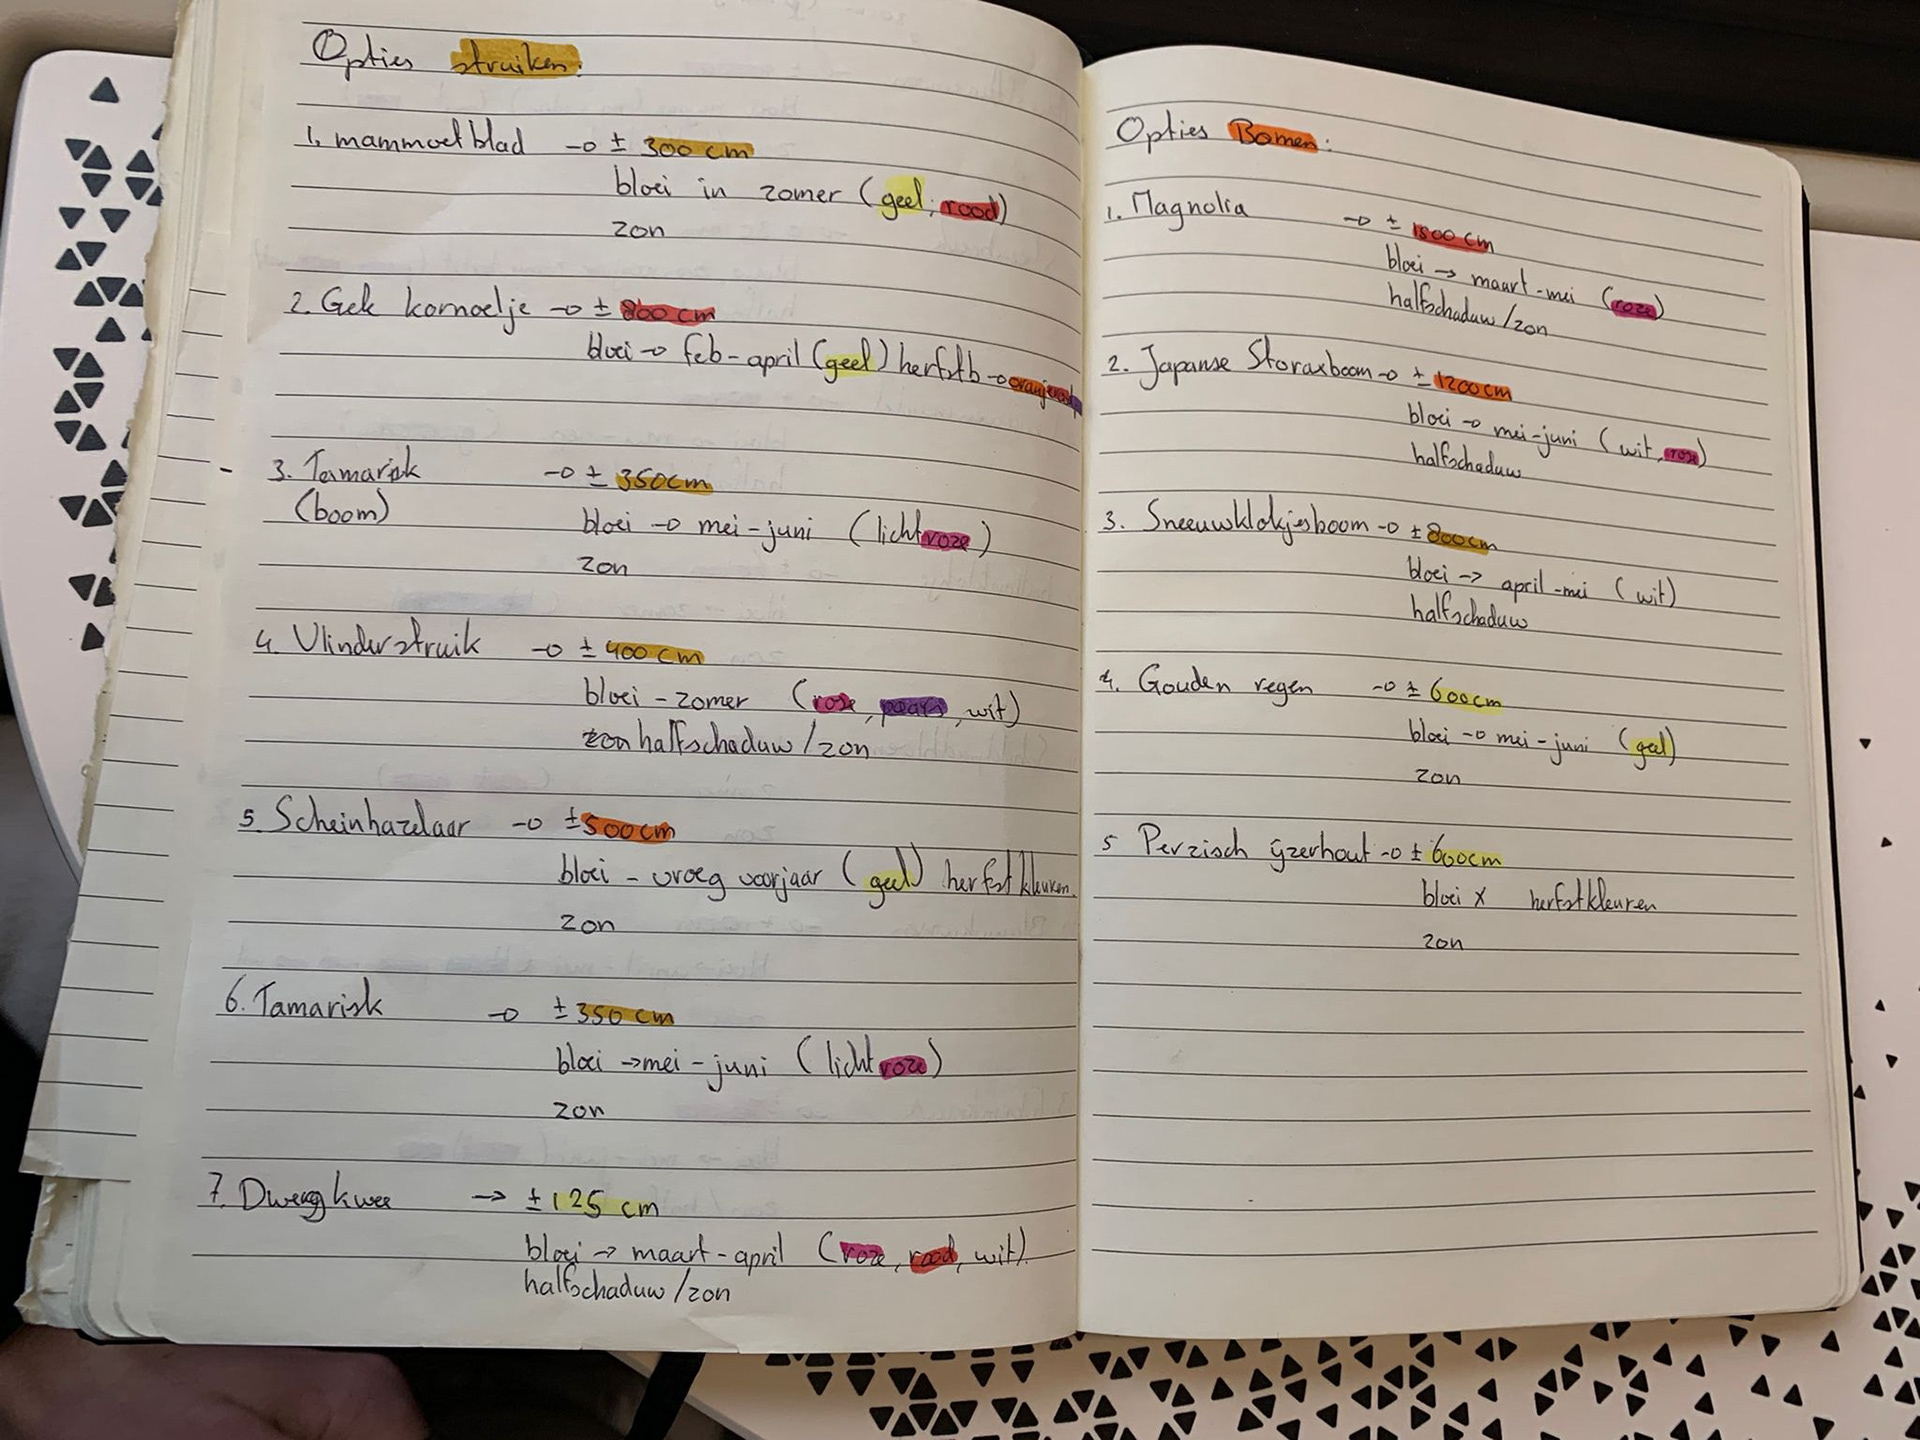 Opties struiken:
1. mammoetblad -o ± 300 cm
bloei in zomer (geel, rood)
zon
2. Gele kornoelje -o ± 800 cm
bloei -o feb-april (geel) herfstb -o oranjerood
3. Tamarisk -o ± 350cm
(boom)
bloei -o mei-juni (lichtroze)
zon
4. Vlinderstruik -o ± 400 cm
bloei - zomer (roze, paars, wit)
halfschaduw/zon
5. Scheinhazelaar -o ±500cm
bloei - vroeg voorjaar (geel) herfstkleuren
zon
6. Tamarisk -o ±350 cm
bloei → mei-juni (lichtroze)
zon
7. Dwergkwee → ±125 cm
bloei → maart-april (roze, rood, wit)
halfschaduw/zon
Opties Bomen:
1. Magnolia -o ± 1800 cm
bloei → maart-mei (roze)
halfschaduw/zon
2. Japanse Storaxboom -o ±1200cm
bloei -o mei-juni (wit, roze)
halfschaduw
3. Sneeuwklokjesboom -o ±800cm
bloei → april-mei (wit)
halfschaduw
4. Gouden regen -o ± 600cm
bloei -o mei-juni (geel)
zon
5 Perzisch ijzerhout -o ± 600cm
bloei x herfstkleuren
zon